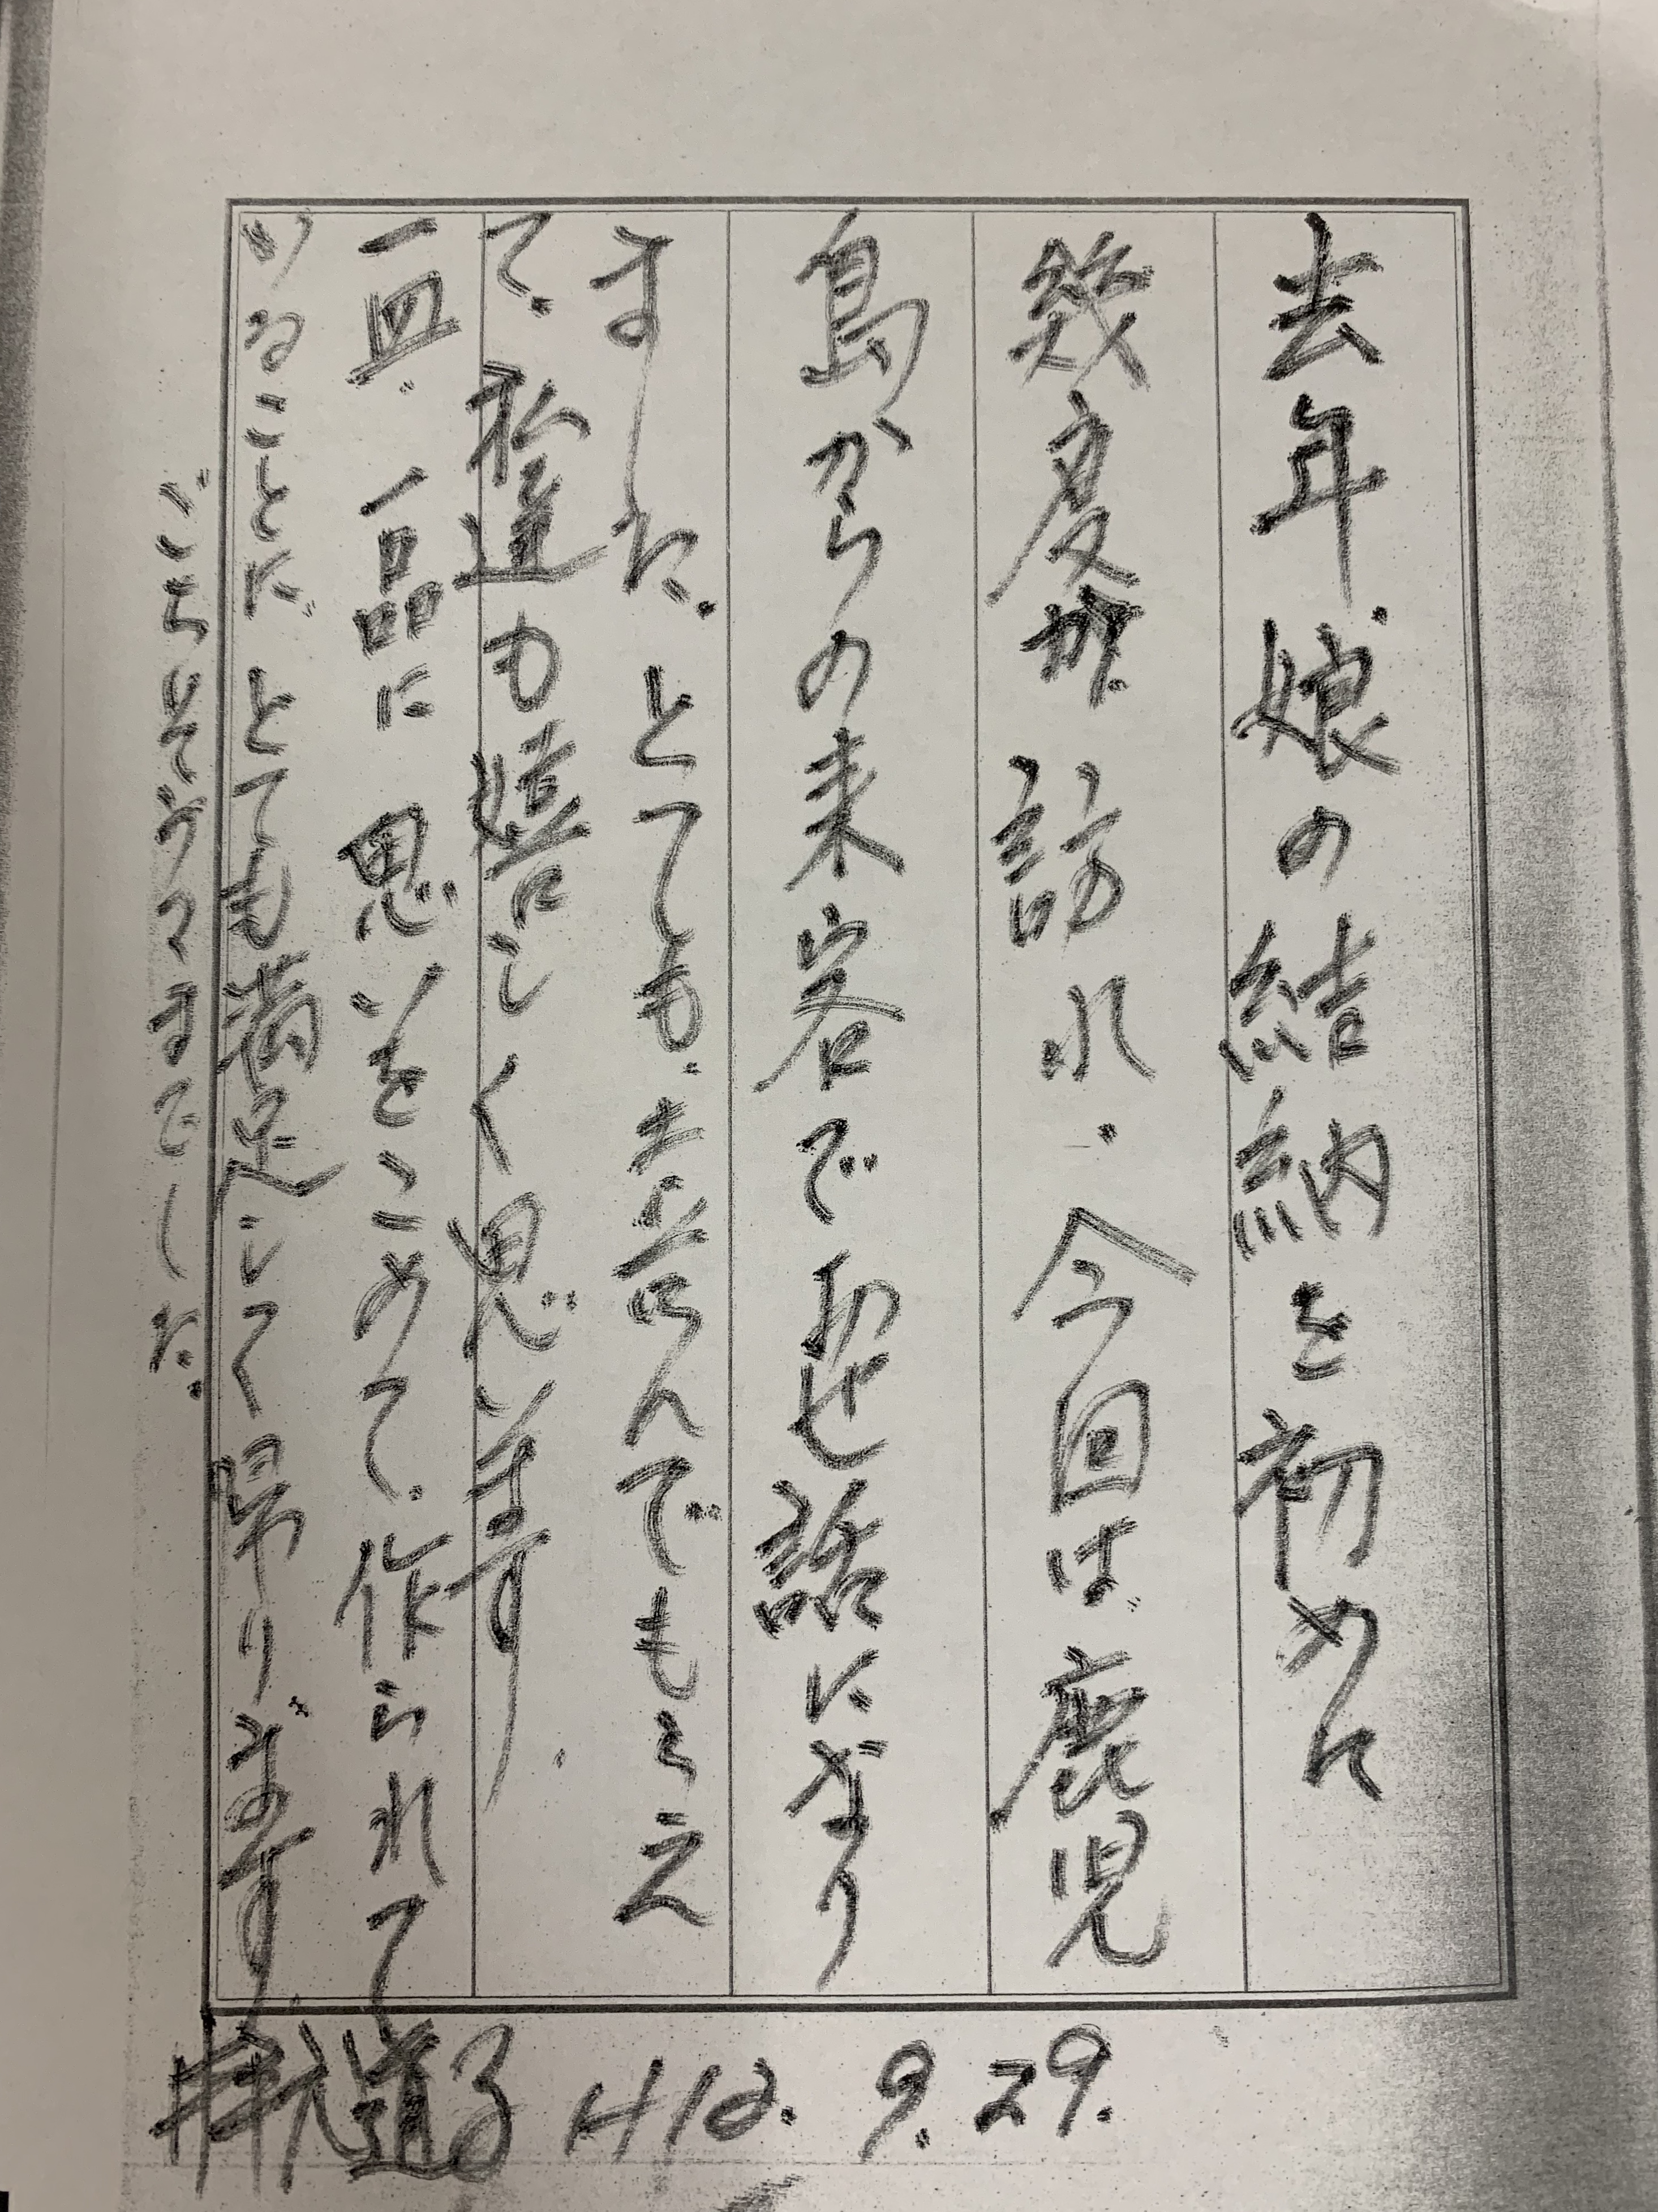 去年、娘の結納を初めに
幾度か訪れ、今回は鹿児
島からの来客でお世話になり
ました。とても、喜んでもらえ
て、私達も嬉しく思います
一皿、一品に思いをこめて、作られて
いることに とても満足して帰ります
ごちそうさまでした。
H12. 9. 29.